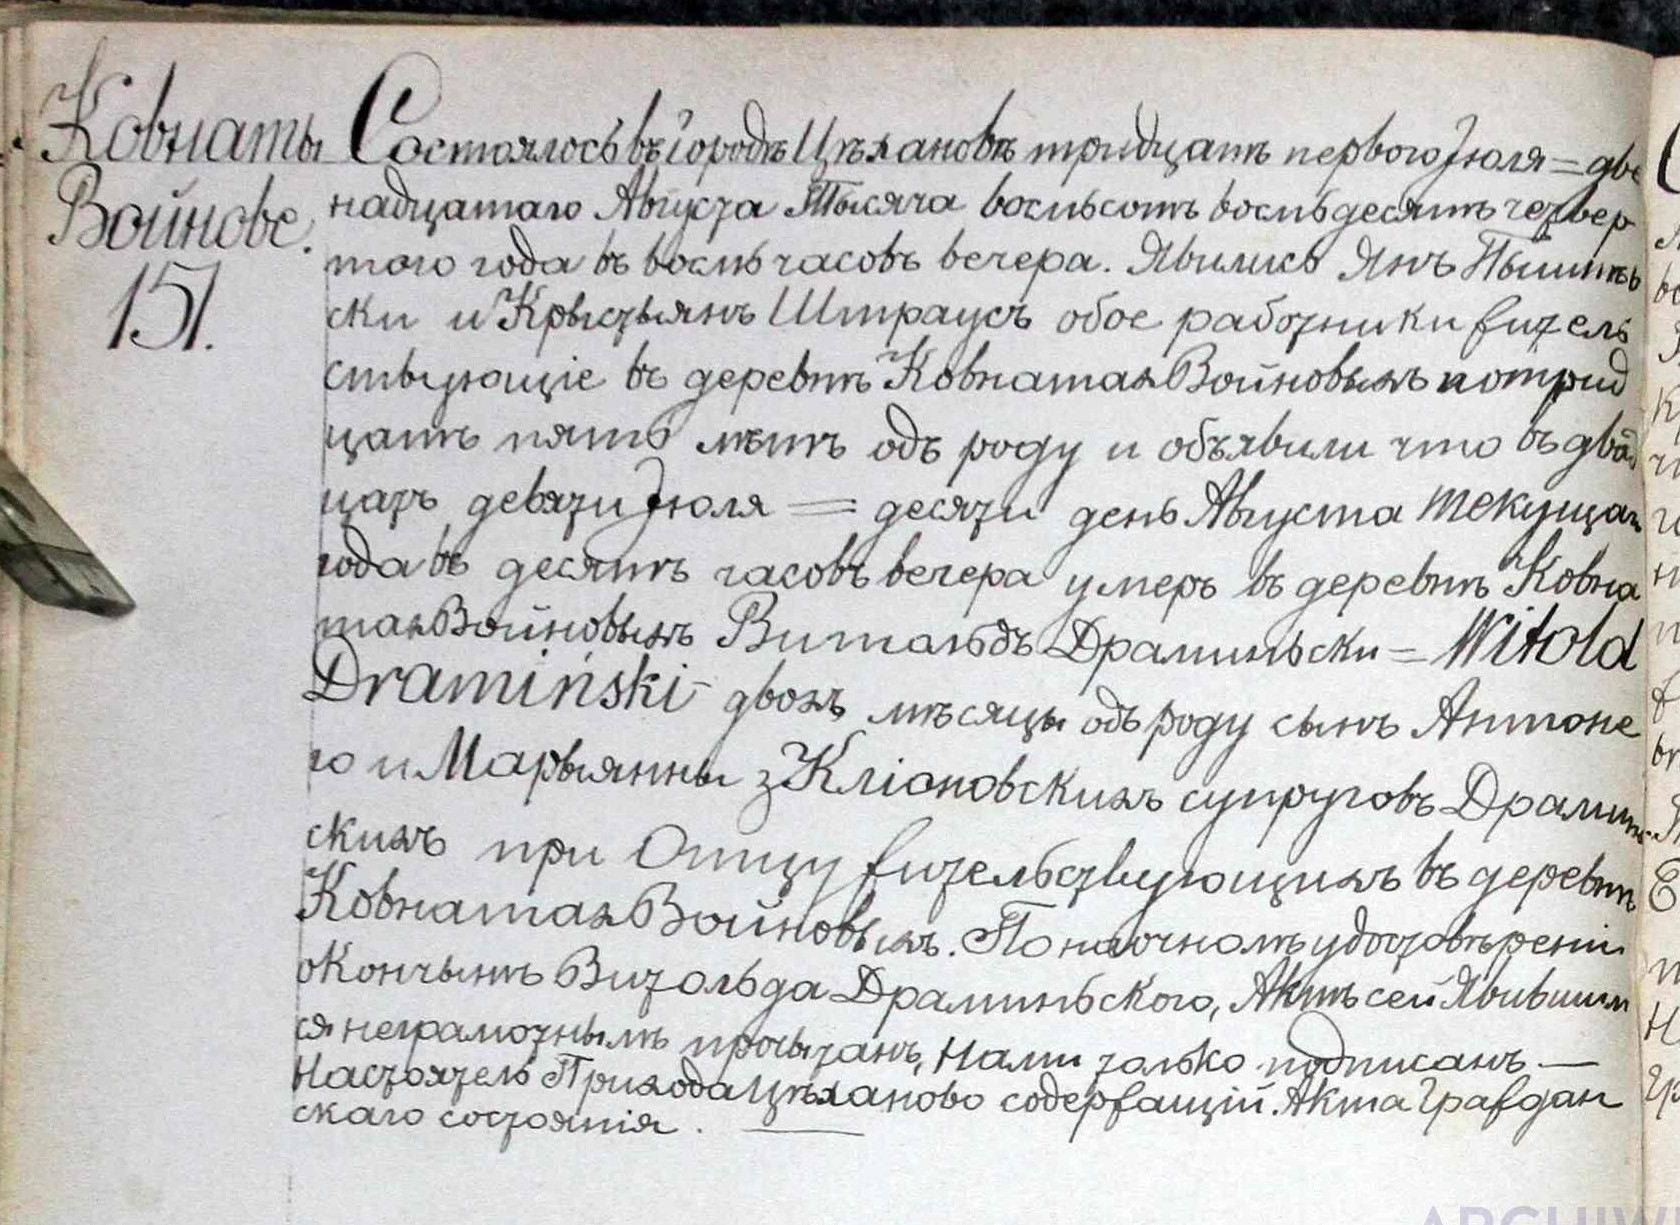 Ковнаты
Войнове.
151.
Состоялось въ городѣ Цѣхановѣ тридцать первого Іюля = две
надцатаго Августа Тысяча восьмьсотъ восьмьдесятъ четвер
того года въ восмь часовъ вечера. Явились Янъ Пышинь
ски и Крыстыянъ Штраусъ обое работники жительствующіе въ деревнѣ Ковнатах Войновыхъ по трид
цать пять лѣтъ одъ роду и объявили что въ двад
цать девяти Іюля = десяти день Августа текущаго
года въ десять часовъ вечера умеръ въ деревнѣ Ковна
тах Войновыхъ Витольдъ Драминьски = Witold
Dramiński двохъ мѣсяцы одъ роду сынъ Антоне
го и Марьянны з Кліоновскихъ супруговъ Драминь
скихъ при Отцу жительствующихъ въ деревнѣ
Ковнатах Войновыхъ. По наочномъ удостовѣреніи
окончынѣ Витольда Драминьского, Актъ сей Явившим
ся неграмотнымъ прочытанъ, Нами только подписанъ —
Настоятель Прихода Цѣханово содержащій Акта Граждан
скаго состоянія. —
ARCHIW